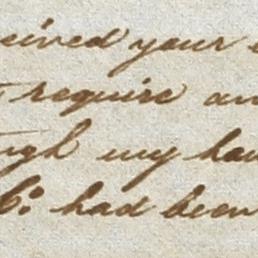 eived your
require an
ugh my
had been